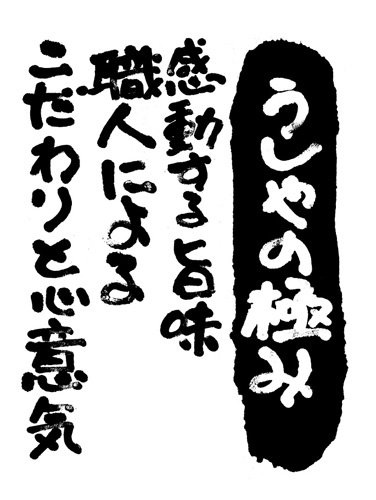 うしやの極み
感動する旨味
職人による
こだわりと心意気